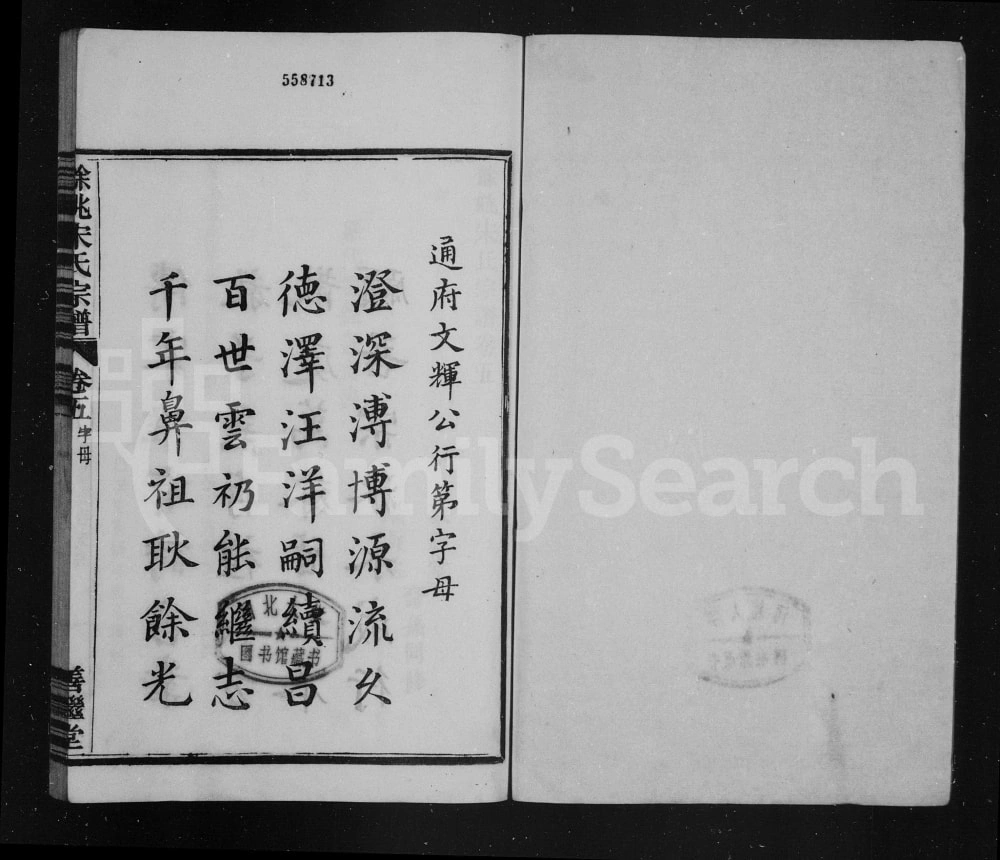 558713
通府文輝公行第字母
澄深溥博源流久
德澤汪洋嗣續昌
百世雲礽能繼志
千年鼻祖耿餘光
餘姚宋氏宗譜
卷五
字母
善繼堂
北
图书馆藏书
FamilySearch